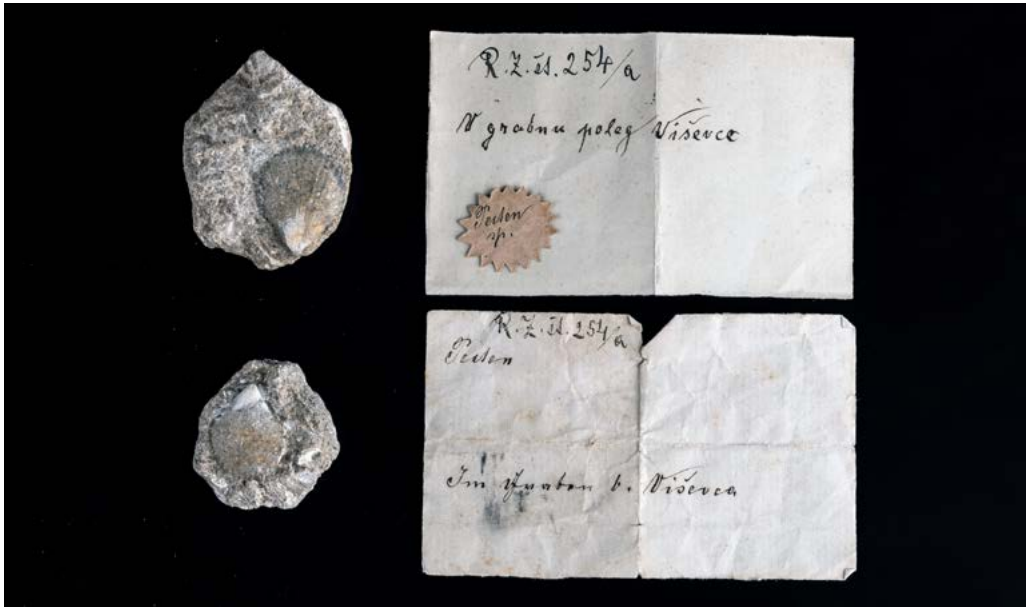 R. Z. št. 254/a
V grabnu poleg Viševce
Pecten
sp.
R. Z. št. 254/a
Pecten
Im Graben b. Viševca